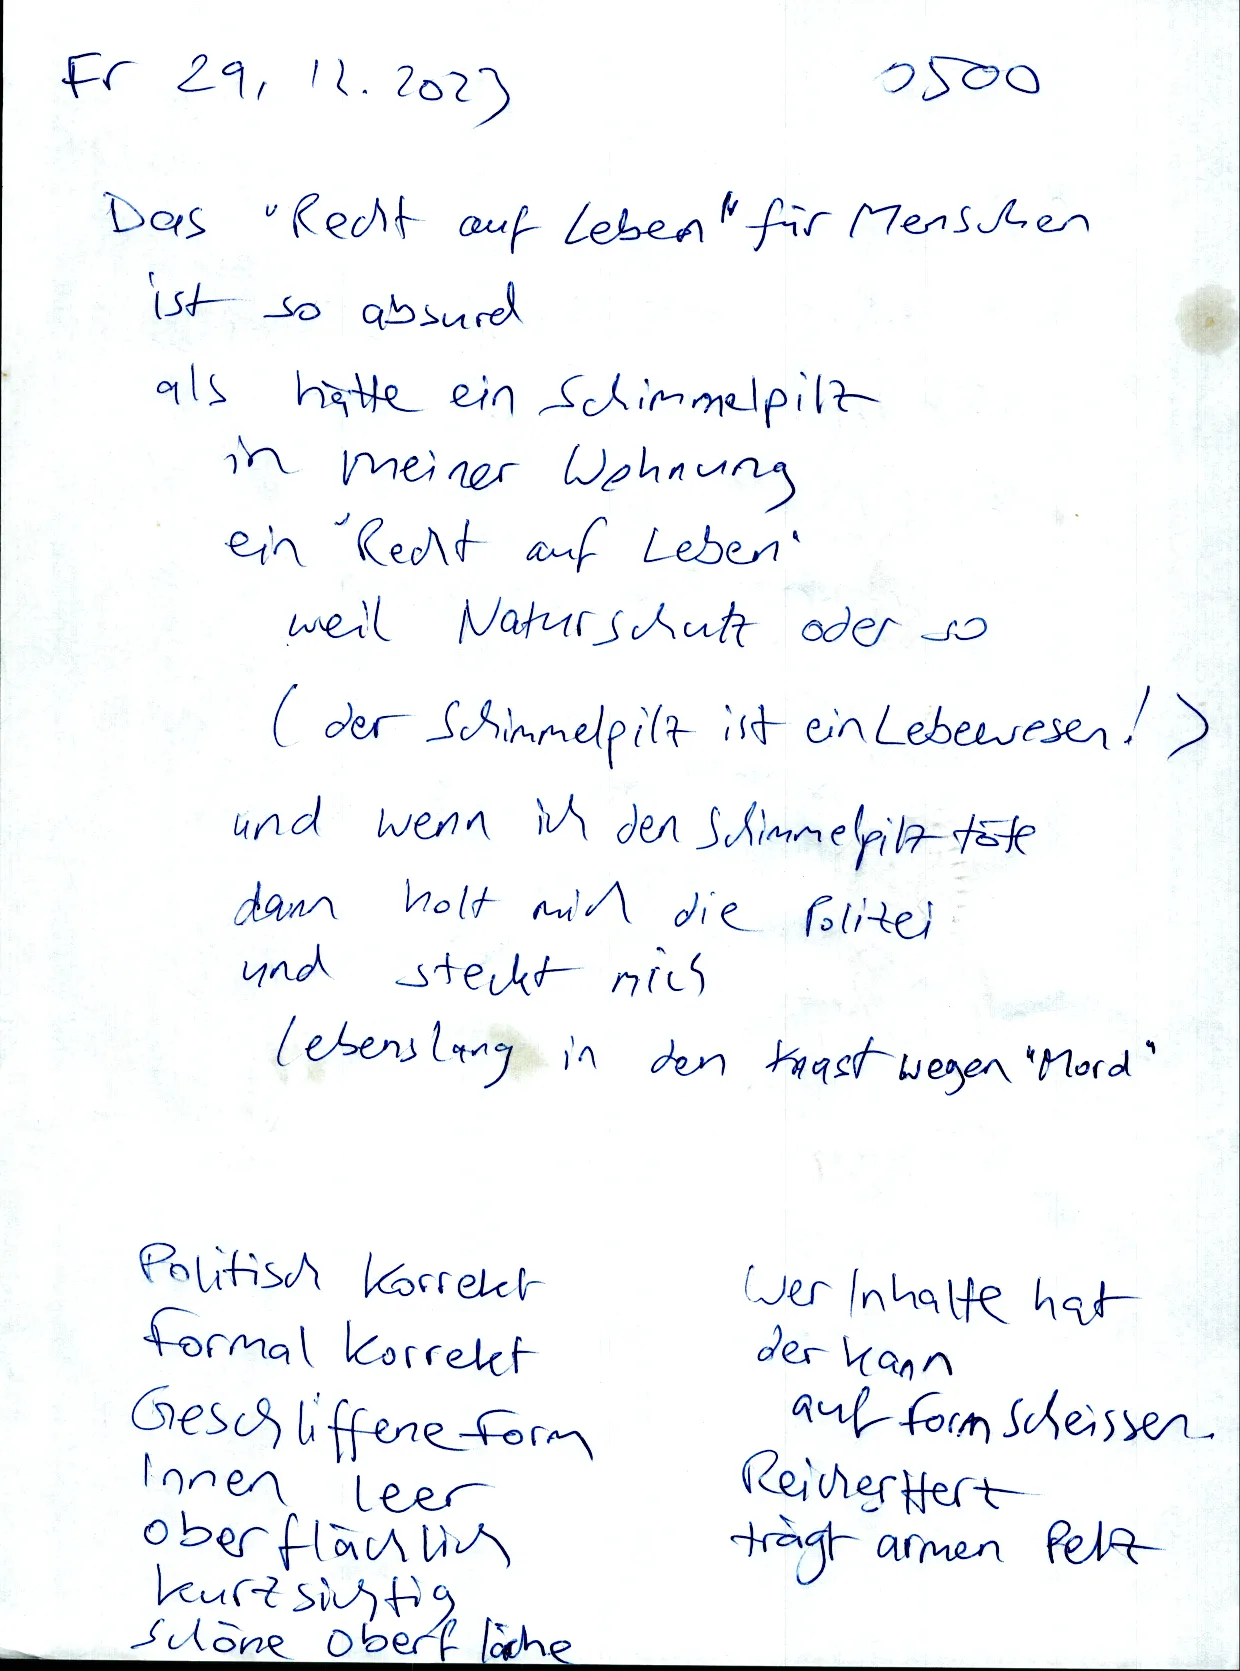 Fr 29.12.2023 0500
Das "Recht auf Leben" für Menschen
ist so absurd
als hätte ein Schimmelpilz
in meiner Wohnung
ein "Recht auf Leben"
weil Naturschutz oder so
(der Schimmelpilz ist ein Lebewesen!)
und wenn ich den Schimmelpilz töte
dann holt mich die Polizei
und steckt mich
lebenslang in den Knast wegen "Mord"
Politisch Korrekt
Formal Korrekt
Geschliffene Form
Innen Leer
oberflächlich
kurzsichtig
schöne Oberfläche
Wer Inhalte hat
der kann
auf Form scheissen.
Reicher Herr
trägt armen Pelz